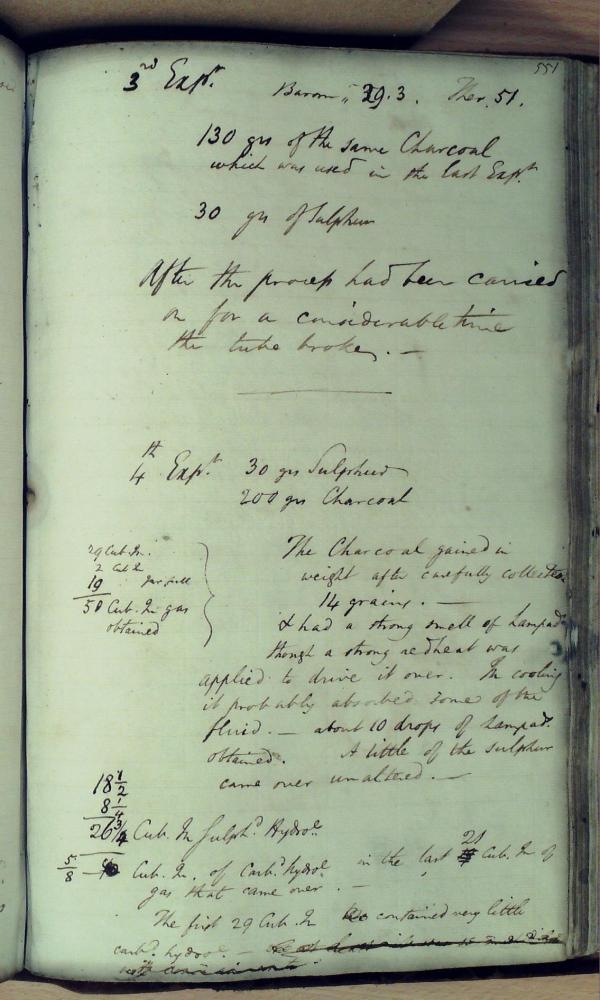 551
3rd Expt. Barom. 29.3. Ther. 51.
130 grs of the same Charcoal
which was used in the last Expt.
30 grs of Sulphur
After the process had been carried
on for a considerable time
the tube broke. —
4th Expt. 30 grs Sulphur
200 grs Charcoal
29 Cub. In.
2 Cub. In
19
50 Cub. In gas
obtained
The Charcoal gained in
weight after carefully collecting
14 grains. —
& had a strong smell of Lampads
though a strong red heat was
applied to drive it over. In cooling
it probably absorbed some of the
fluid. — about 10 drops of Lampad.
obtained. A little of the Sulphur
came over unaltered. —
18 1/2
8 1/4
26 3/4 Cub. In Sulphd. Hydroe.
5/8 Cub. In. of Carbd. hydroe in the last 21 Cub. In of
gas that came over. —
The first 29 Cub. In contained very little
carbd. hydroe. —